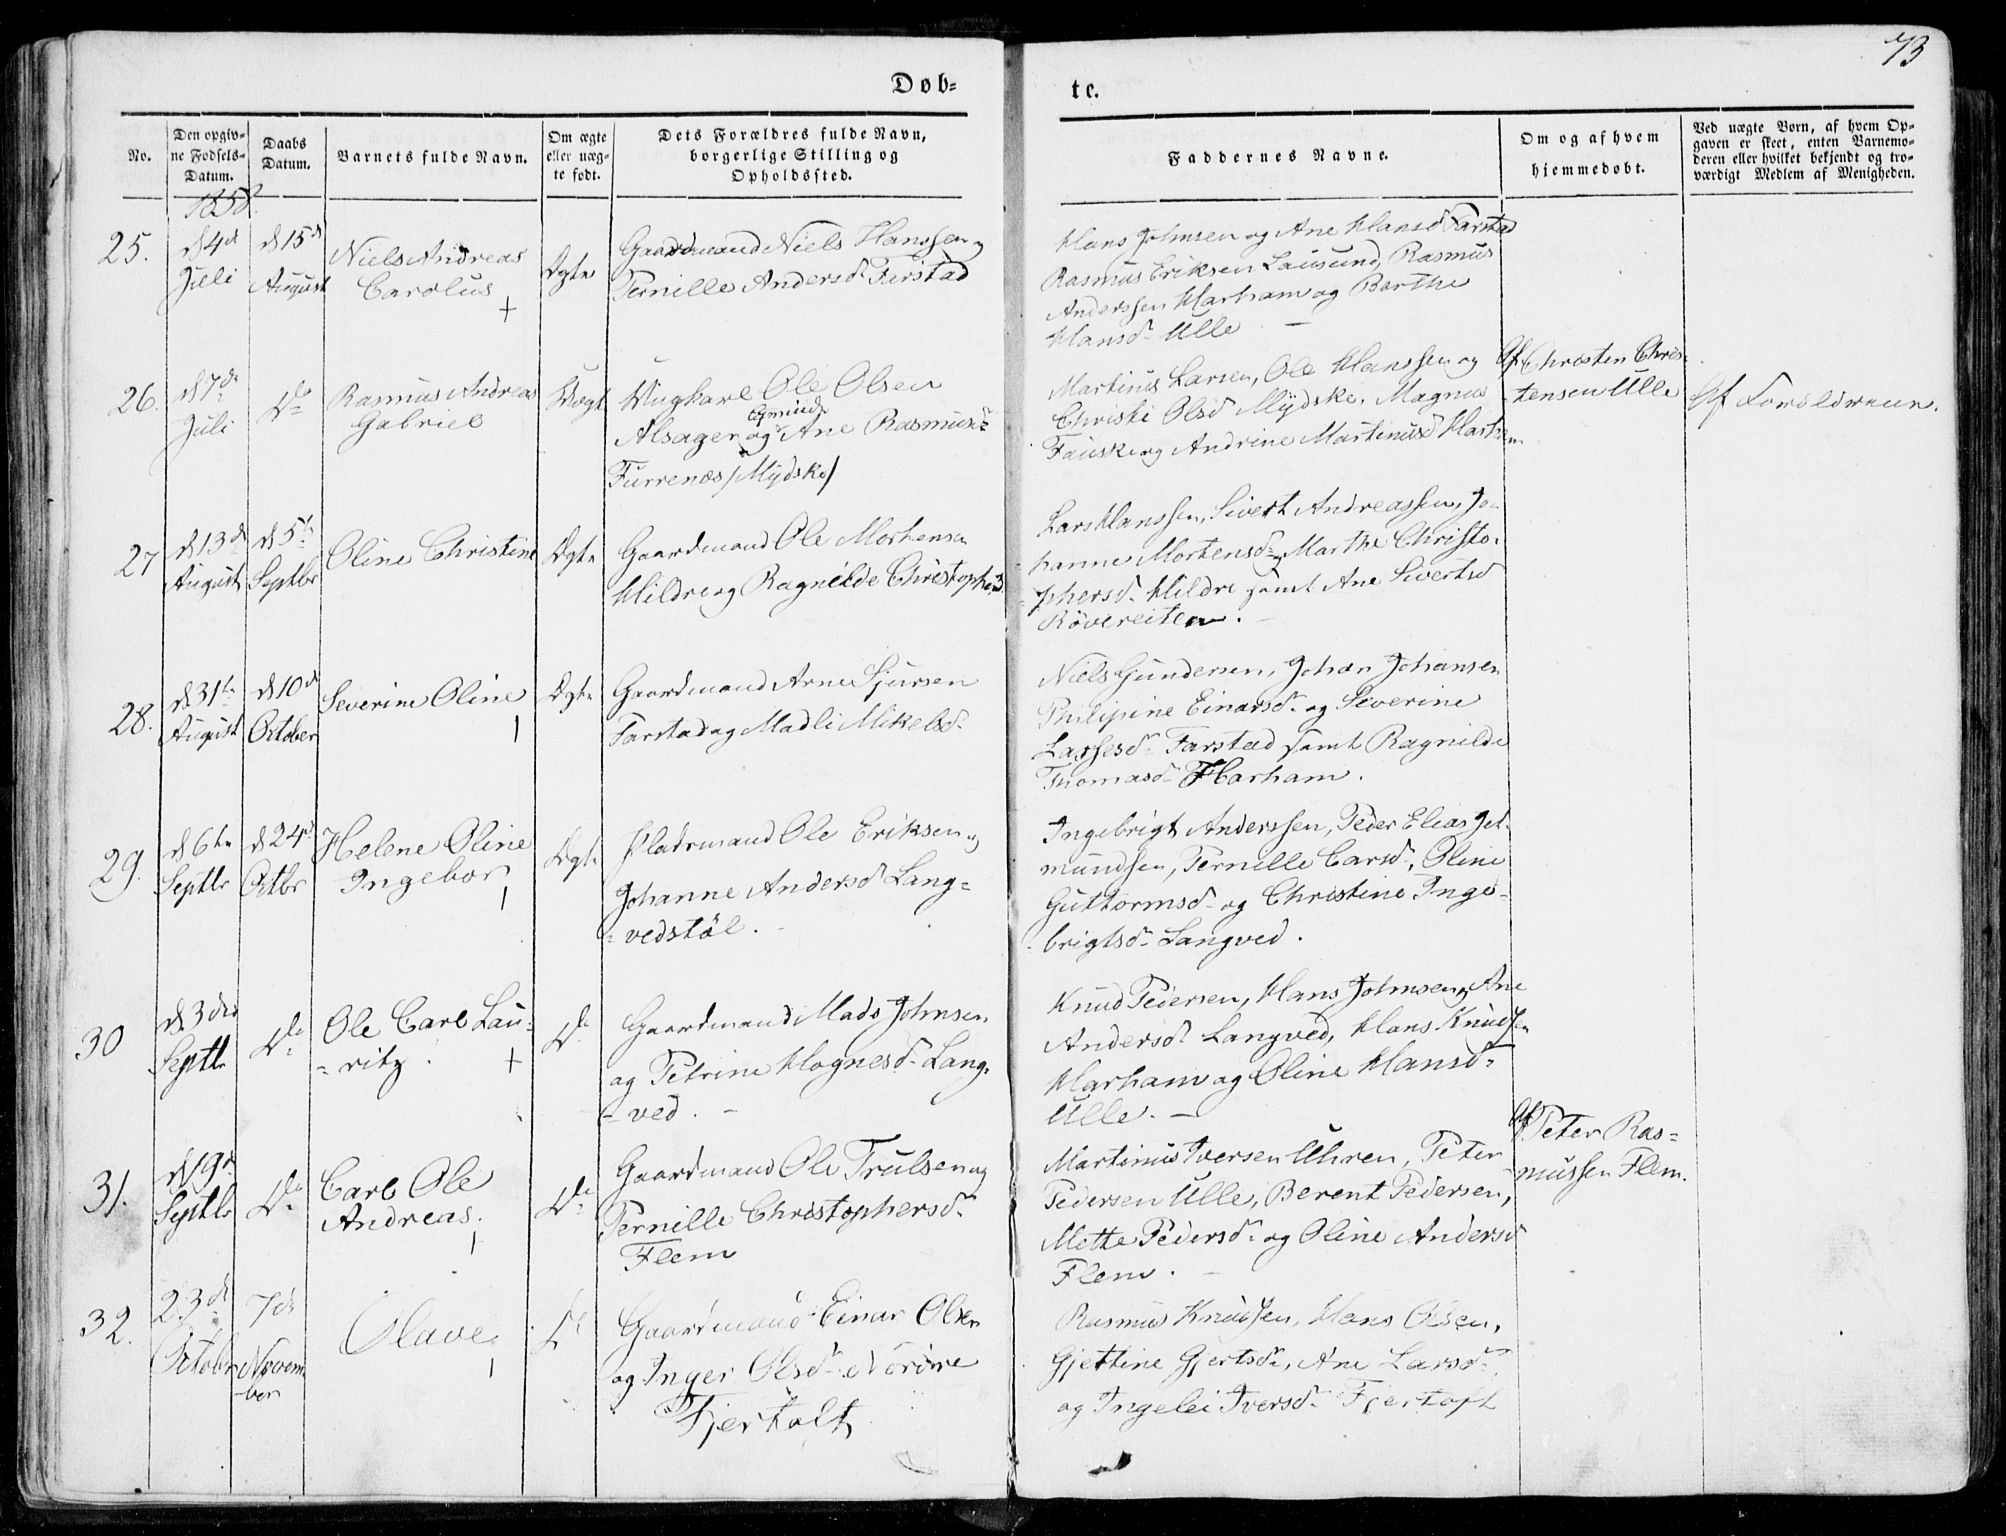 73
Døb-
te.
No.
Den opgiv-
ne Fødsels-
Datum.
Daabs
Datum.
Barnets fulde Navn.
Om ægte
eller uæg-
te født.
Dets Forældres fulde Navn,
borgerlige Stilling og
Opholdssted.
Faddernes Navne.
Om og af hvem
hjemmedøbt.
Ved uægte Børn, af hvem Op-
gaven er skeet, enten Barnemo-
deren eller hvilket bekjendt og tro-
værdigt Medlem af Menigheden.
1858.
25.
d 4d
Juli
d 15d
August
Niels Andreas
Carolus
+
Ægte
Gaardmand Niels Hanssen og
Pernille Andersd Farstad
Hans Johnsen og Ane Hansd Farstad
Rasmus Eriksen Lausund, Rasmus
Anderssen Harham og Barthe
Hansd Ulle —
26.
d 7de
Juli
Do
Rasmus Andreas
Gabriel
Uægte
Ungkarl Ole Olsen
Alsager og Ane Rasmusd
Furrenæs /Mÿdske/
Martinus Larsen, Ole Hanssen og
Christi Olsd Mÿdske, Magnus
Fauske og Andrine Martinusd Harham
Af Christen Chris-
tensen Ulle
Af Forældrene.
27
d 13d
August
d 5te
Septbr
Oline Christine
Ægte
Gaardmand Ole Mortensen
Hildre og Ragnilde Christophersd
Lars Hanssen, Sivert Andreassen, Jo-
hanne Mortensd og Marthe Christo-
phersd Hildre samt Ane Sivertsd
Røvereiten. —
28.
d 31te
August
d 10d
October
Severine Oline
Ægte
Gaardmand Arne Sjursen
Farstad og Madli Mikelsd
Niels Gundersen, Johan Johansen
Philipine Einarsd og Severine
Lassesd Farstad samt Ragnilde
Thomasd Harham.
29.
d 6te
Septbr
d 24d
Octbr
Helene Oline
Ingebor
Ægte
Pladsmand Ole Eriksen og
Johanne Andersd Lang-
vedstøl. —
Ingebrigt Anderssen, Peder Elias Jet-
mundsen, Pernille Larsd, Oline
Guttormsd og Christine Inge-
brigtsd Langved.
30
d 3die
Septbr
Do
Ole Carl Lau-
ritz.
+
Do
Gaardmand Mads Johnsen
og Petrine Mognesd Lang-
ved. —
Knud Pedersen, Hans Johnsen og Ane
Andersd Langved, Hans Knudsen
Harham og Oline Hansd
Ulle. —
31.
d 19d
Septbr
Do
Carl Ole
Andreas.
Do
Gaardmand Ole Trulsen og
Pernille Christophersd
Flem
Martinus Iversen Uhren, Peter
Pedersen Ulle, Berent Pedersen,
Mette Pedersd og Oline Andersd
Flem. —
Af Peter Ras-
mussen Flem.
32.
23d
October
7de
Novem-
ber
Olave
Gaardmand Einar Olsen
og Inger Olsd Nordre
Fjertoft
Rasmus Knudsen, Hans Olsen,
Gjettine Gjertsd, Ane Larsd
og Ingelei Iversd Fjertoft